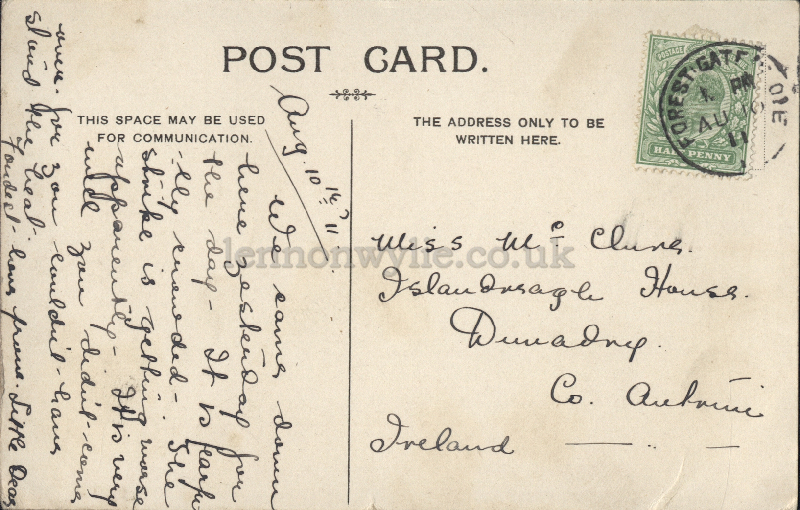 POST CARD.
THIS SPACE MAY BE USED
FOR COMMUNICATION.
THE ADDRESS ONLY TO BE
WRITTEN HERE.
POSTAGE
HALF PENNY
FOREST-GATE
AU 10
11
Aug. 10th 11
We came down
here yesterday for
the day - It is fearfu
-lly crowded - The
strike is getting worse
apparently - It is very
well you didn't come
over. for you couldn't have
stand the heat.
Fondest love from.
Miss Mc Clure.
Islandreagh House.
Dunadry.
Co. Antrim
Ireland
lennonwylie.co.uk